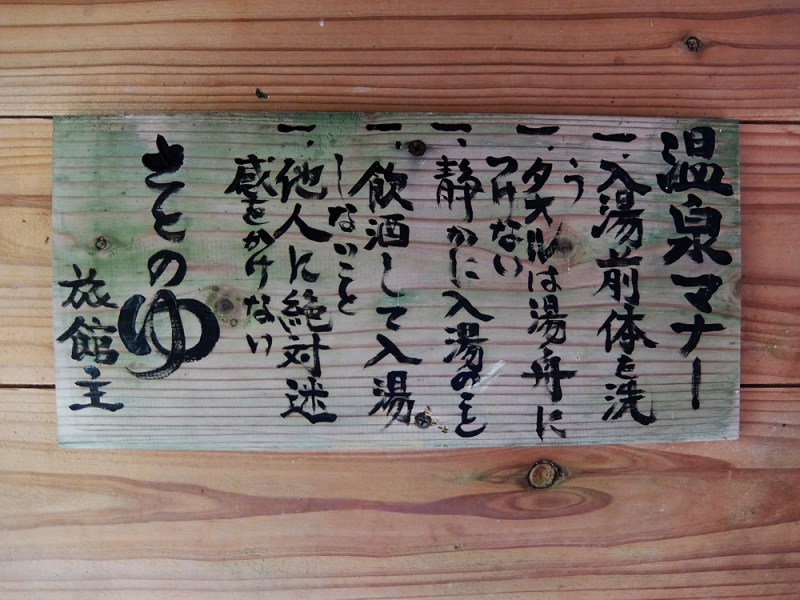 温泉マナー
一、入湯前体を洗
う
一、タオルは湯舟に
つけない
一、静かに入湯のこと
一、飲酒して入湯。
しないこと
一、他人に絶対迷
惑をかけない
さとのゆ
旅館主